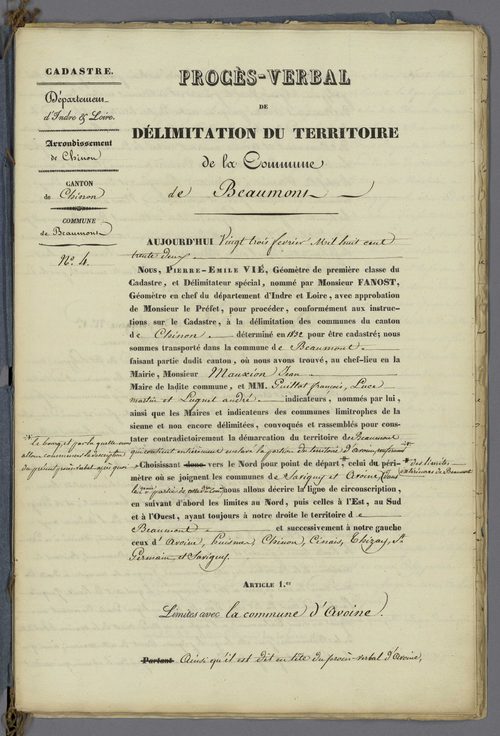 CADASTRE.
Département
d'Indre & Loire.
Arrondissement
de Chinon
CANTON
de Chinon
COMMUNE
de Beaumont
N.º 4.
PROCÈS-VERBAL
DE
DÉLIMITATION DU TERRITOIRE
de la Commune
de Beaumont
AUJOURD'HUI Vingt trois fevrier Mil huit cent
trente deux
NOUS, PIERRE-EMILE VIÉ, Géomètre de première classe du
Cadastre, et Délimitateur spécial, nommé par Monsieur FANOST,
Géomètre en chef du département d'Indre et Loire, avec approbation
de Monsieur le Préfet, pour procéder, conformément aux instruc-
tions sur le Cadastre, à la délimitation des communes du canton
de Chinon déterminé en 1832 pour être cadastré; nous
sommes transporté dans la commune de Beaumont
faisant partie dudit canton, où nous avons trouvé, au chef-lieu en la
Mairie, Monsieur Mauxion Jean
Maire de ladite commune, et MM. Guillot françois, Luce
martin et Luquet andré indicateurs, nommés par lui,
ainsi que les Maires et indicateurs des communes limitrophes de la
sienne et non encore délimitées, convoqués et rassemblés pour cons-
tater contradictoirement la démarcation du territoire de Beaumont
qui contient entièrement enclavé la portion du territoire d'Avoine,
* Le bourg, et par laquelle nous
allons commencer la description
du présent procès verbal, ainsi quoi
Choisissant donc vers le Nord pour point de départ, celui du péri-
* des limites
extérieures de Beaumont
mètre où se joignent les communes de Savigny et Avoine
nous allons décrire la ligne de circonscription,
en suivant d'abord les limites au Nord, puis celles à l'Est, au Sud
et à l'Ouest, ayant toujours à notre droite le territoire de
Beaumont et successivement à notre gauche
ceux d'Avoine, huismes, Chinon, Cinais, Thizay, St.
Germain, et Savigny.
ARTICLE 1.er
Limites avec la commune d'Avoine.
Partant Ainsi qu'il est dit en tête du procès-verbal d'Avoine,